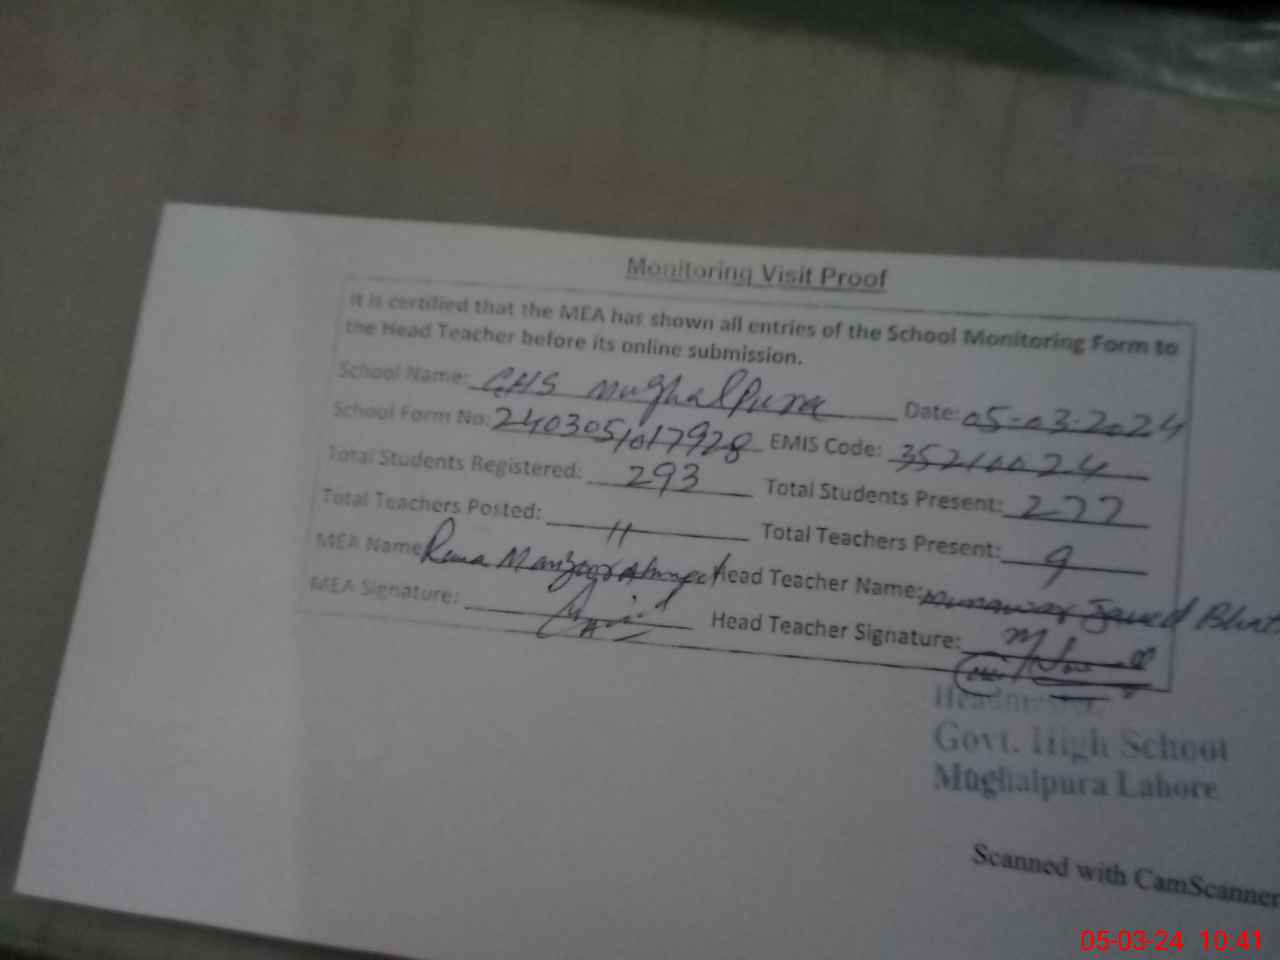 Monitoring Visit Proof
It is certified that the MEA has shown all entries of the School Monitoring Form to
the Head Teacher before its online submission.
School Name: GHS Mughalpura Date: 05-03-2024
School Form No: 2403051017928 EMIS Code: 35210024
Total Students Registered: 293 Total Students Present: 277
Total Teachers Posted: 11 Total Teachers Present: 9
MEA Name Rana Manzoor Ahmed Head Teacher Name: Munawar Javed Bhat
MEA Signature: Head Teacher Signature:
Headmaster
Govt. High School
Mughalpura Lahore
Scanned with CamScanner
05-03-24 10:41